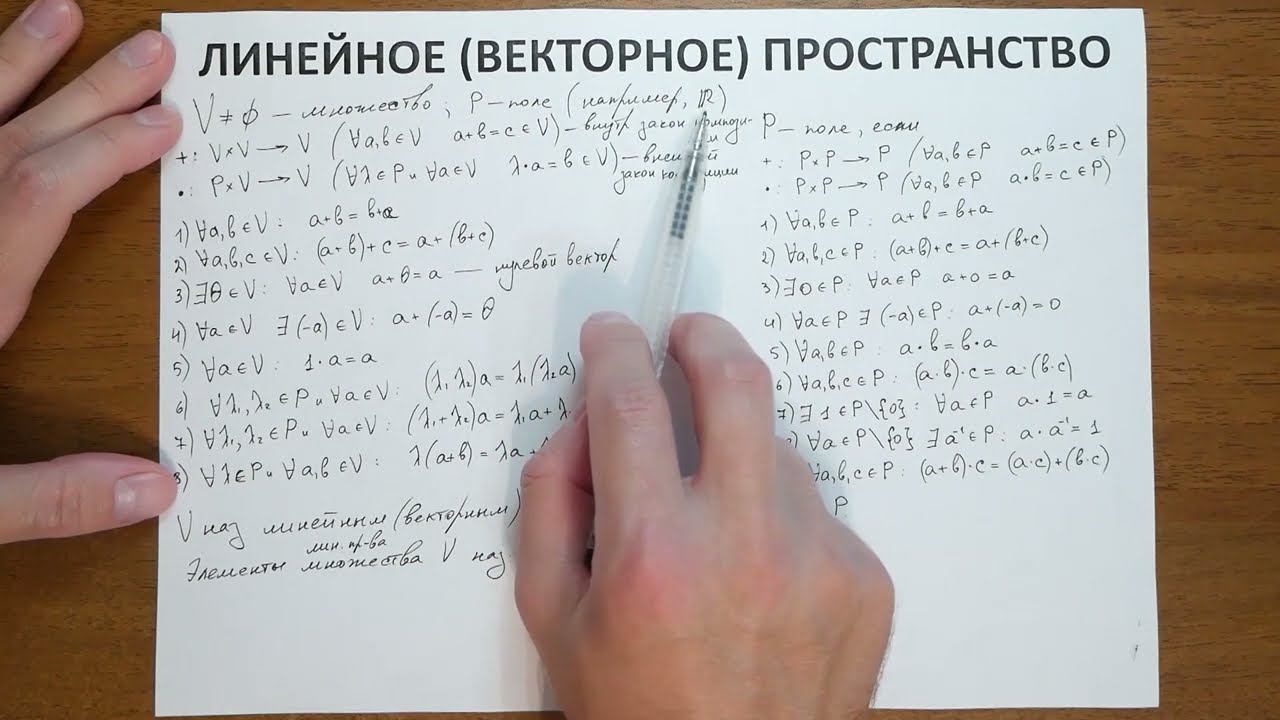 ЛИНЕЙНОЕ (ВЕКТОРНОЕ) ПРОСТРАНСТВО
V ≠ ϕ – множество; P – поле (например, ℝ)
+: V×V → V (∀a,b∈V a+b=c∈V) – внутр закон
•: P×V → V (∀λ∈P и ∀a∈V λ·a=b∈V) –
закон
1) ∀a,b∈V: a+b=b+a
2) ∀a,b,c∈V: (a+b)+c=a+(b+c)
3) ∃θ∈V: ∀a∈V a+θ=a — нулевой вектор
4) ∀a∈V ∃(-a)∈V: a+(-a)=θ
5) ∀a∈V: 1·a=a
6) ∀λ₁,λ₂∈P и ∀a∈V: (λ₁λ₂)a=λ₁(λ₂a)
7) ∀λ₁,λ₂∈P и ∀a∈V: (λ₁+λ₂)a=λ₁a+λ
8) ∀λ∈P и ∀a,b∈V: λ(a+b)=λa+
V наз линейным (векторным)
лин. пр-ва
Элементы множества V наз.
P – поле, если
+: P×P → P (∀a,b∈P a+b=c∈P)
•: P×P → P (∀a,b∈P a·b=c∈P)
1) ∀a,b∈P: a+b=b+a
2) ∀a,b,c∈P: (a+b)+c=a+(b+c)
3) ∃0∈P: ∀a∈P a+0=a
4) ∀a∈P ∃(-a)∈P: a+(-a)=0
5) ∀a,b∈P: a·b=b·a
6) ∀a,b,c∈P: (a·b)·c=a·(b·c)
7) ∃1∈P\{0}: ∀a∈P a·1=a
) ∀a∈P\{0} ∃a⁻¹∈P: a·a⁻¹=1
∀a,b,c∈P: (a+b)·c=(a·c)+(b·c)
P